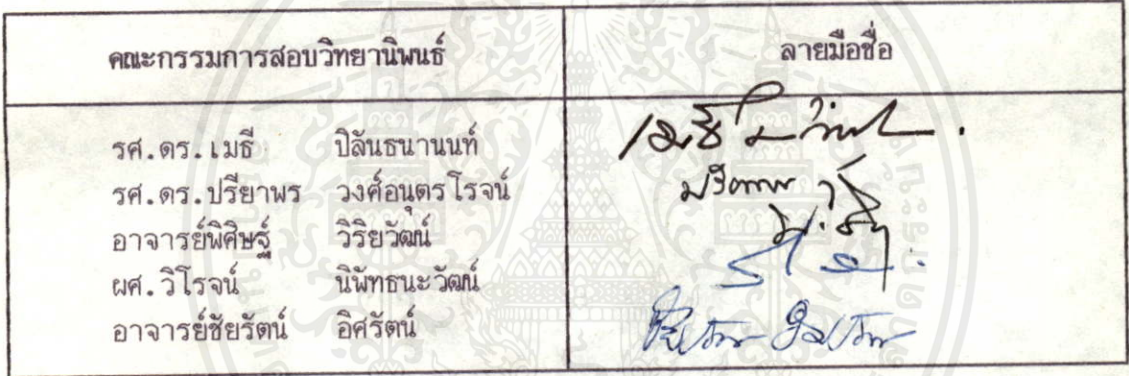 คณะกรรมการสอบวิทยานิพนธ์ ลายมือชื่อ
รศ.ดร.เมธี ปิลันธนานนท์
รศ.ดร.ปรียาพร วงศ์อนุตรโรจน์
อาจารย์พิศิษฐ์ วิริยวัฒน์
ผศ.วิโรจน์ นิพัทธนะวัฒน์
อาจารย์ชัยรัตน์ อิศรัตน์